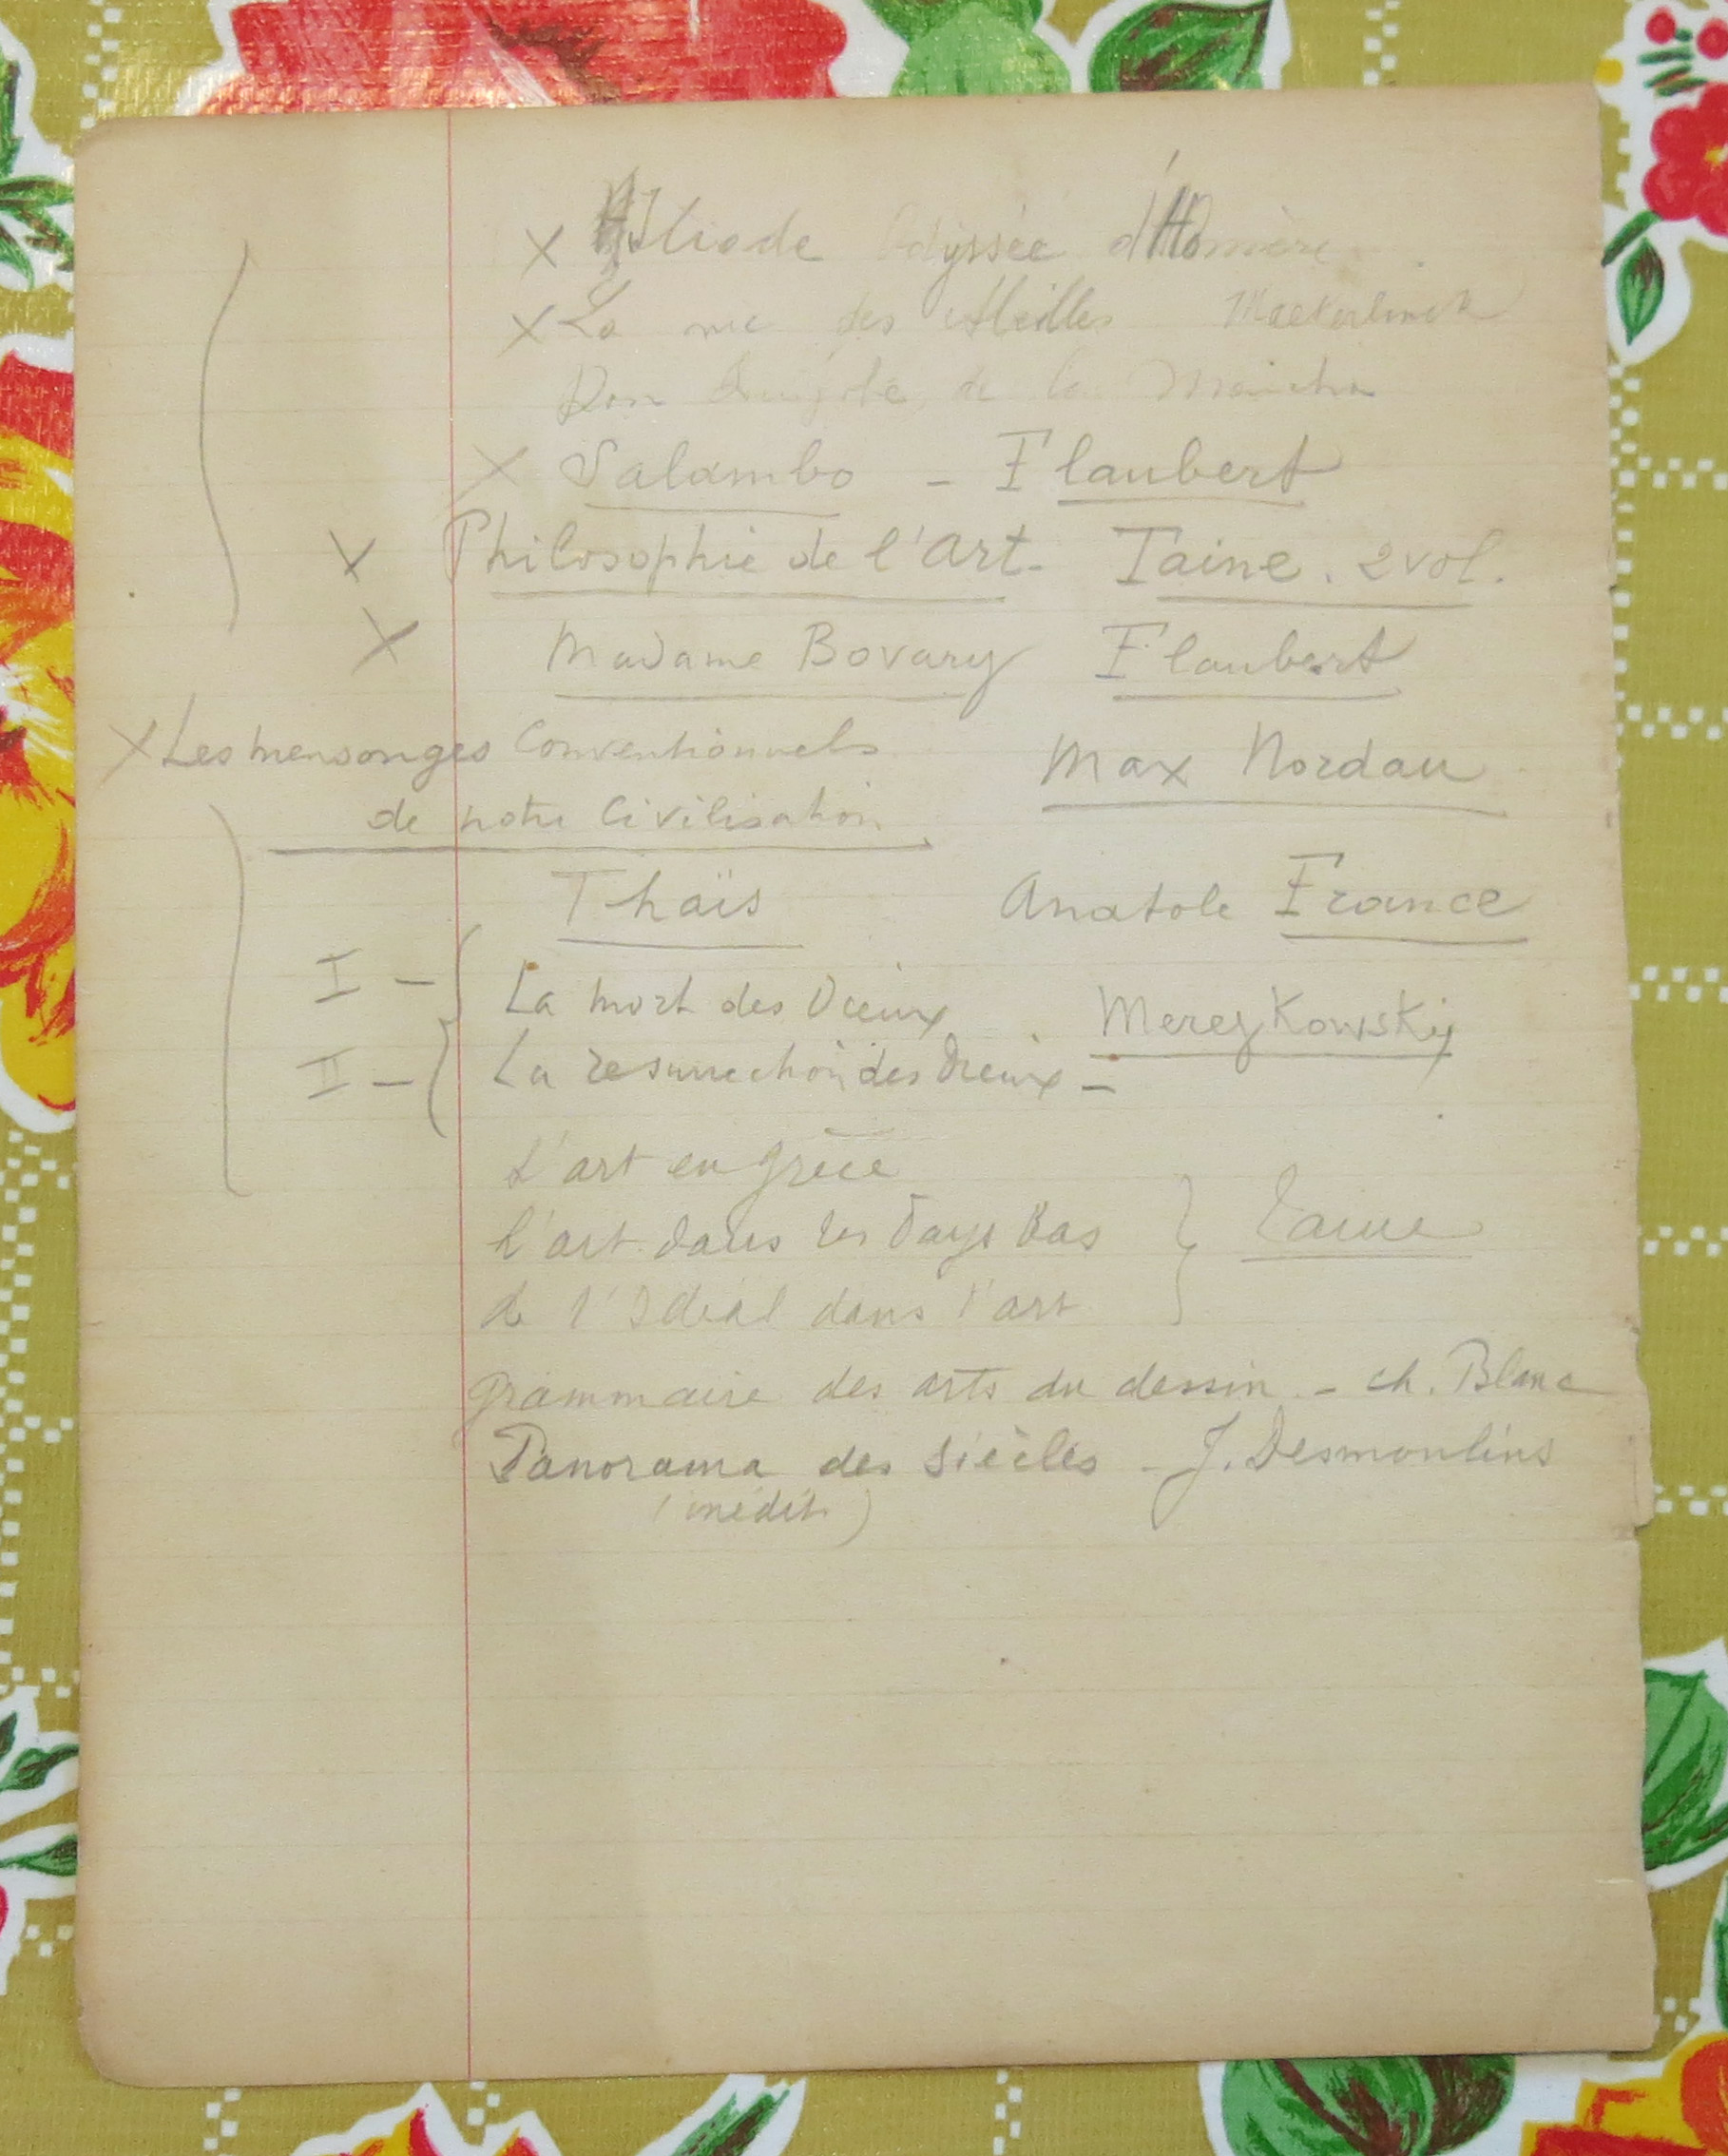 X Iliade Odyssée d'Homère
X La vie des Abeilles Maeterlinck
Don Quijote de la Mancha
X Salambo - Flaubert
X Philosophie de l'art - Taine. 2 vol.
X Madame Bovary Flaubert
X Les mensonges Conventionnels Max Nordau
de notre Civilisation
Thaïs Anatole France
I - La mort des Dieux Merejkowskij
II - La resurrection des Dieux -
L'art en grèce
l'art dans les Pays Bas Taine
de l'Idéal dans l'art
grammaire des arts du dessin. - ch. Blanc
Panorama des siècles - J. Desmoulins
(inédit)